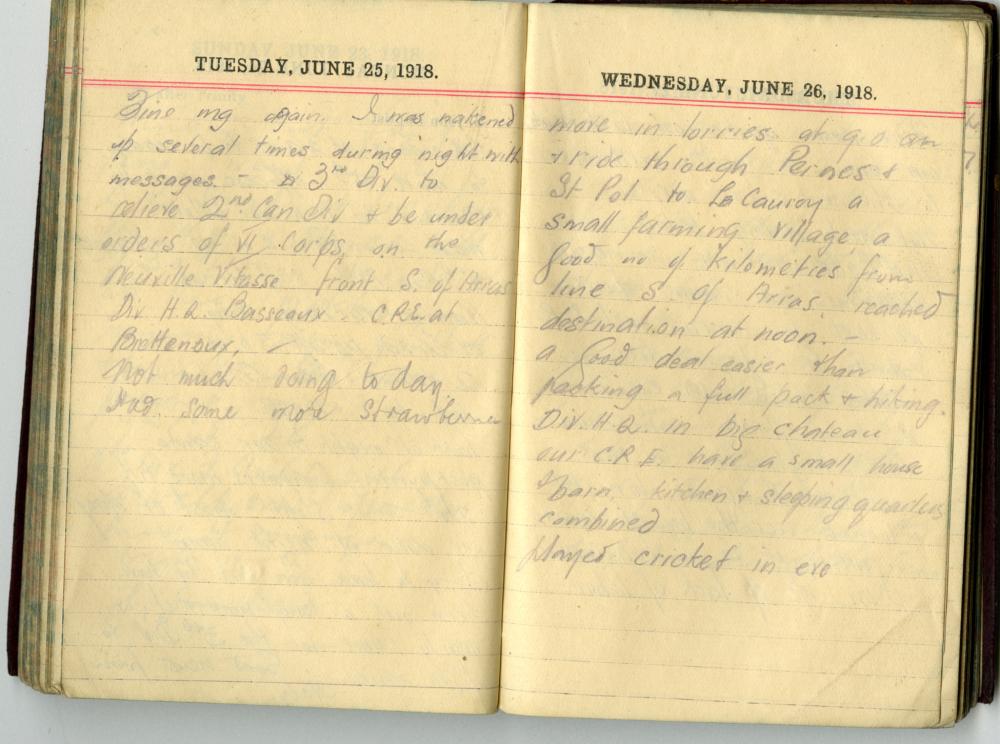 TUESDAY, JUNE 25, 1918.
Fine mg again. I was wakened
up several times during night with
messages. - 3rd Div. to
relieve 2nd Can Div + be under
orders of VI Corps, on the
Neuville Vitasse front S. of Arras
Div H.Q. Basseaux. C.R.E. at
Brettenoux, -
Not much doing to day
Had some more strawberries
WEDNESDAY, JUNE 26, 1918.
move in lorries at 9.0 am
+ ride through Pernes +
St Pol to Le Cauroy a
small farming village, a
good no of kilometres from
line S. of Arras. reached
destination at noon. -
a good deal easier than
packing a full pack + hiking.
Div. H.Q. in big chateau
our C.R.E. have a small house
barn, kitchen + sleeping quarters
combined
played cricket in eve